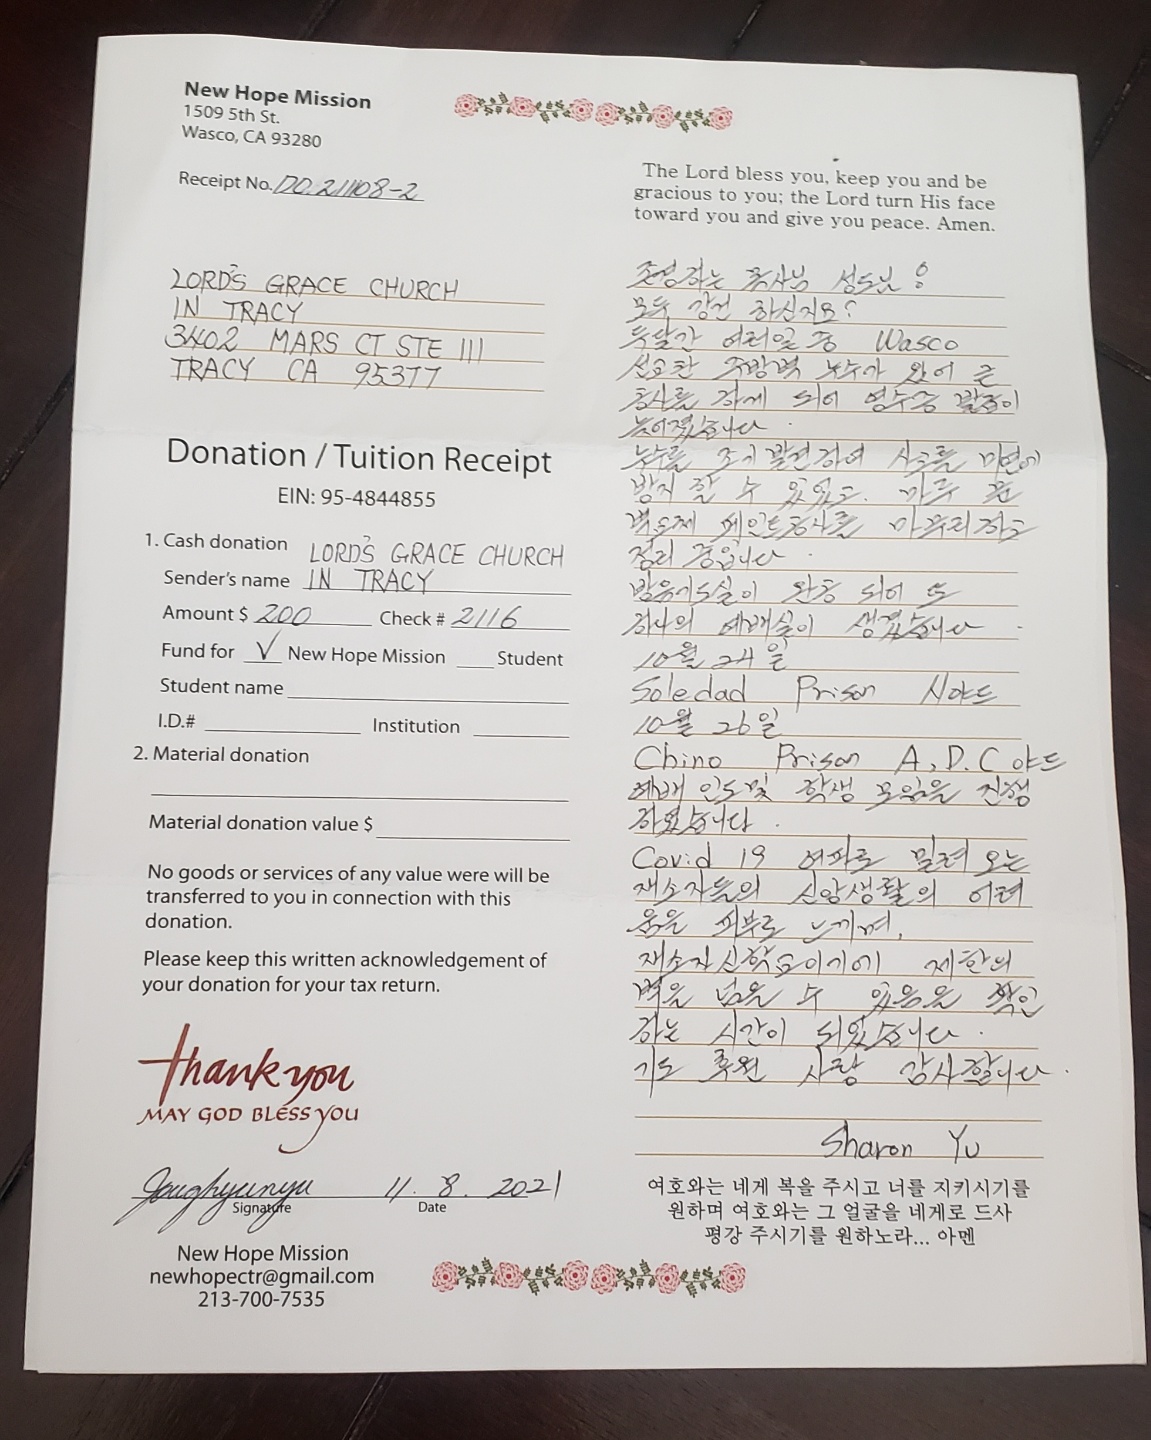 New Hope Mission
1509 5th St.
Wasco, CA 93280
Receipt No. DO.211108-2
LORD'S GRACE CHURCH
IN TRACY
3402 MARS CT STE 111
TRACY CA 95377
Donation / Tuition Receipt
EIN: 95-4844855
1. Cash donation LORD'S GRACE CHURCH
Sender's name IN TRACY
Amount $ 200 Check # 2116
Fund for V New Hope Mission Student
Student name
I.D.# Institution
2. Material donation
Material donation value $
No goods or services of any value were will be
transferred to you in connection with this
donation.
Please keep this written acknowledgement of
your donation for your tax return.
Thank you
MAY GOD BLESS YOU
11. 8. 2021
Signature Date
New Hope Mission
newhopectr@gmail.com
213-700-7535
The Lord bless you, keep you and be
gracious to you; the Lord turn His face
toward you and give you peace. Amen.
존경하는 목사님 성도님!
모두 강건 하신지요?
두달간 여러일 중 Wasco
선교관 주방벽 누수가 있어 큰
공사를 하게 되어 영수증 발송이
늦어졌습니다.
누수를 조기 발견하여 사고를 미연에
방지 할 수 있었고. 마루 론
벽 페인트공사를 마무리하고
정리 중입니다.
방음기도실이 완공 되어 또
하나의 예배실이 생겼습니다.
10월 24일
Soledad Prison 사야드
10월 26일
Chino Prison A, D. C 야드
예배 인도및 학생 모임을 진행
하였습니다.
Covid 19 여파로 밀려 오는
재소자들의 신앙생활의 어려
움을 피부로 느끼며,
재소자신학교이기에 제한의
벽을 넘을 수 있음을 확인
하는 시간이 되었습니다.
기도 후원 사랑 감사합니다.
Sharon Yu
여호와는 네게 복을 주시고 너를 지키시기를
원하며 여호와는 그 얼굴을 네게로 드사
평강 주시기를 원하노라... 아멘